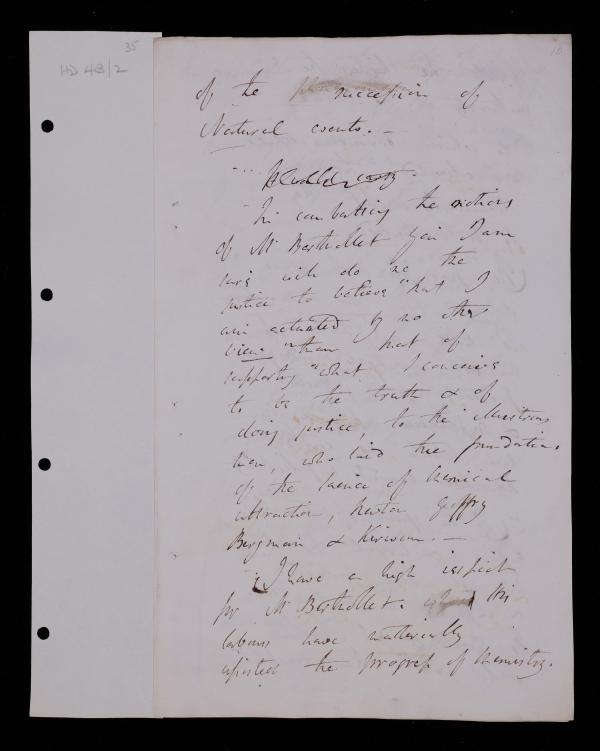 35
HD 48/2
10
of the succession of
Natural events. —
In combating the notions
of Mr Berthollet you I am
sure will do me the
justice to believe that I
am actuated by no other
view than that of
supporting what I conceive
to be the truth & of
doing justice, to the illustrious
men, who laid the foundations
of the Science of chemical
attraction, Newton Geoffry
Bergman & Kirwan. —
I have a high respect
for Mr Berthollet. His
labours have materially
assisted the progress of chemistry.